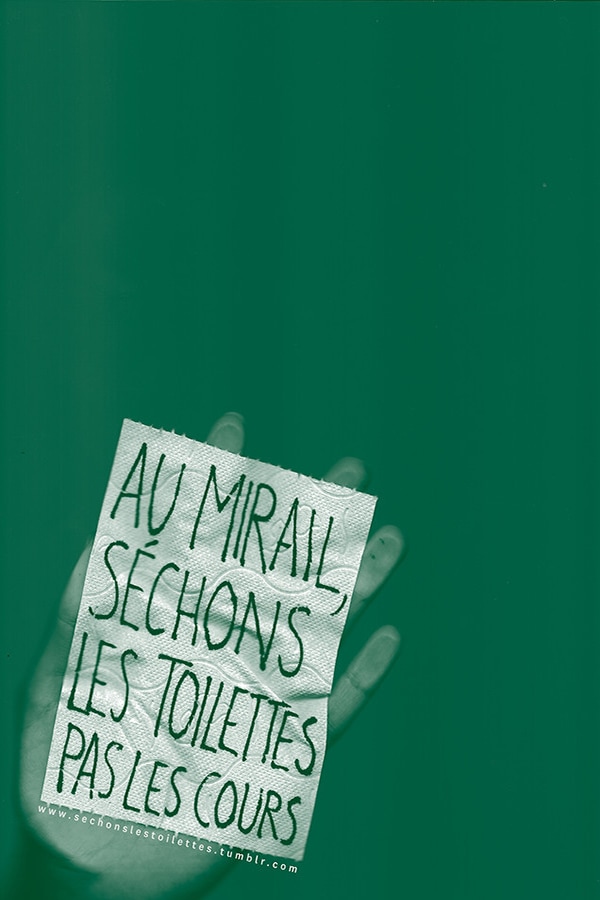 AU MIRAIL,
SÉCHONS
LES TOILETTES
PAS LES COURS
www.sechonslestoilettes.tumblr.com